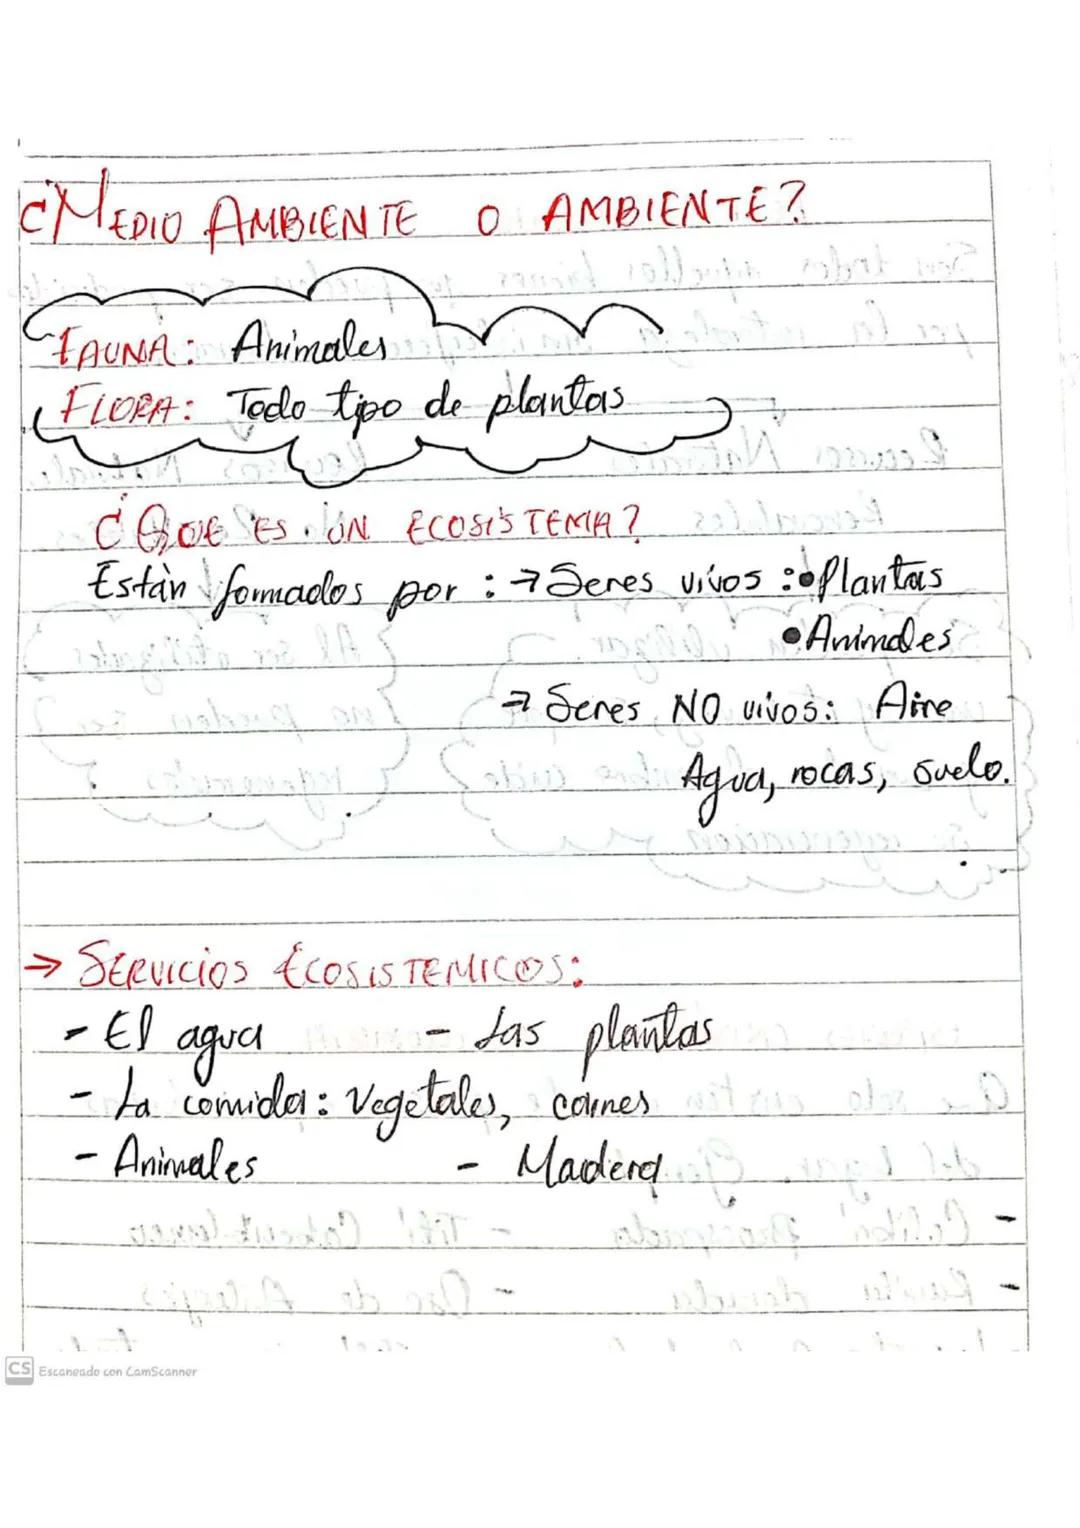 ¿MEDIO AMBIENTE O AMBIENTE?
FAUNA: Animales
FLORA: Todo tipo de plantas
¿QUE ES UN ECOSISTEMA?
Están formados por : → Seres vivos : • Plantas
• Animales
→ Seres NO vivos: Aire
Agua, rocas, suelo.
→ SERVICIOS ECOSISTEMICOS:
- El agua - Las plantas
- La comida: Vegetales, carnes
- Animales - Madera
CS Escaneado con CamScanner